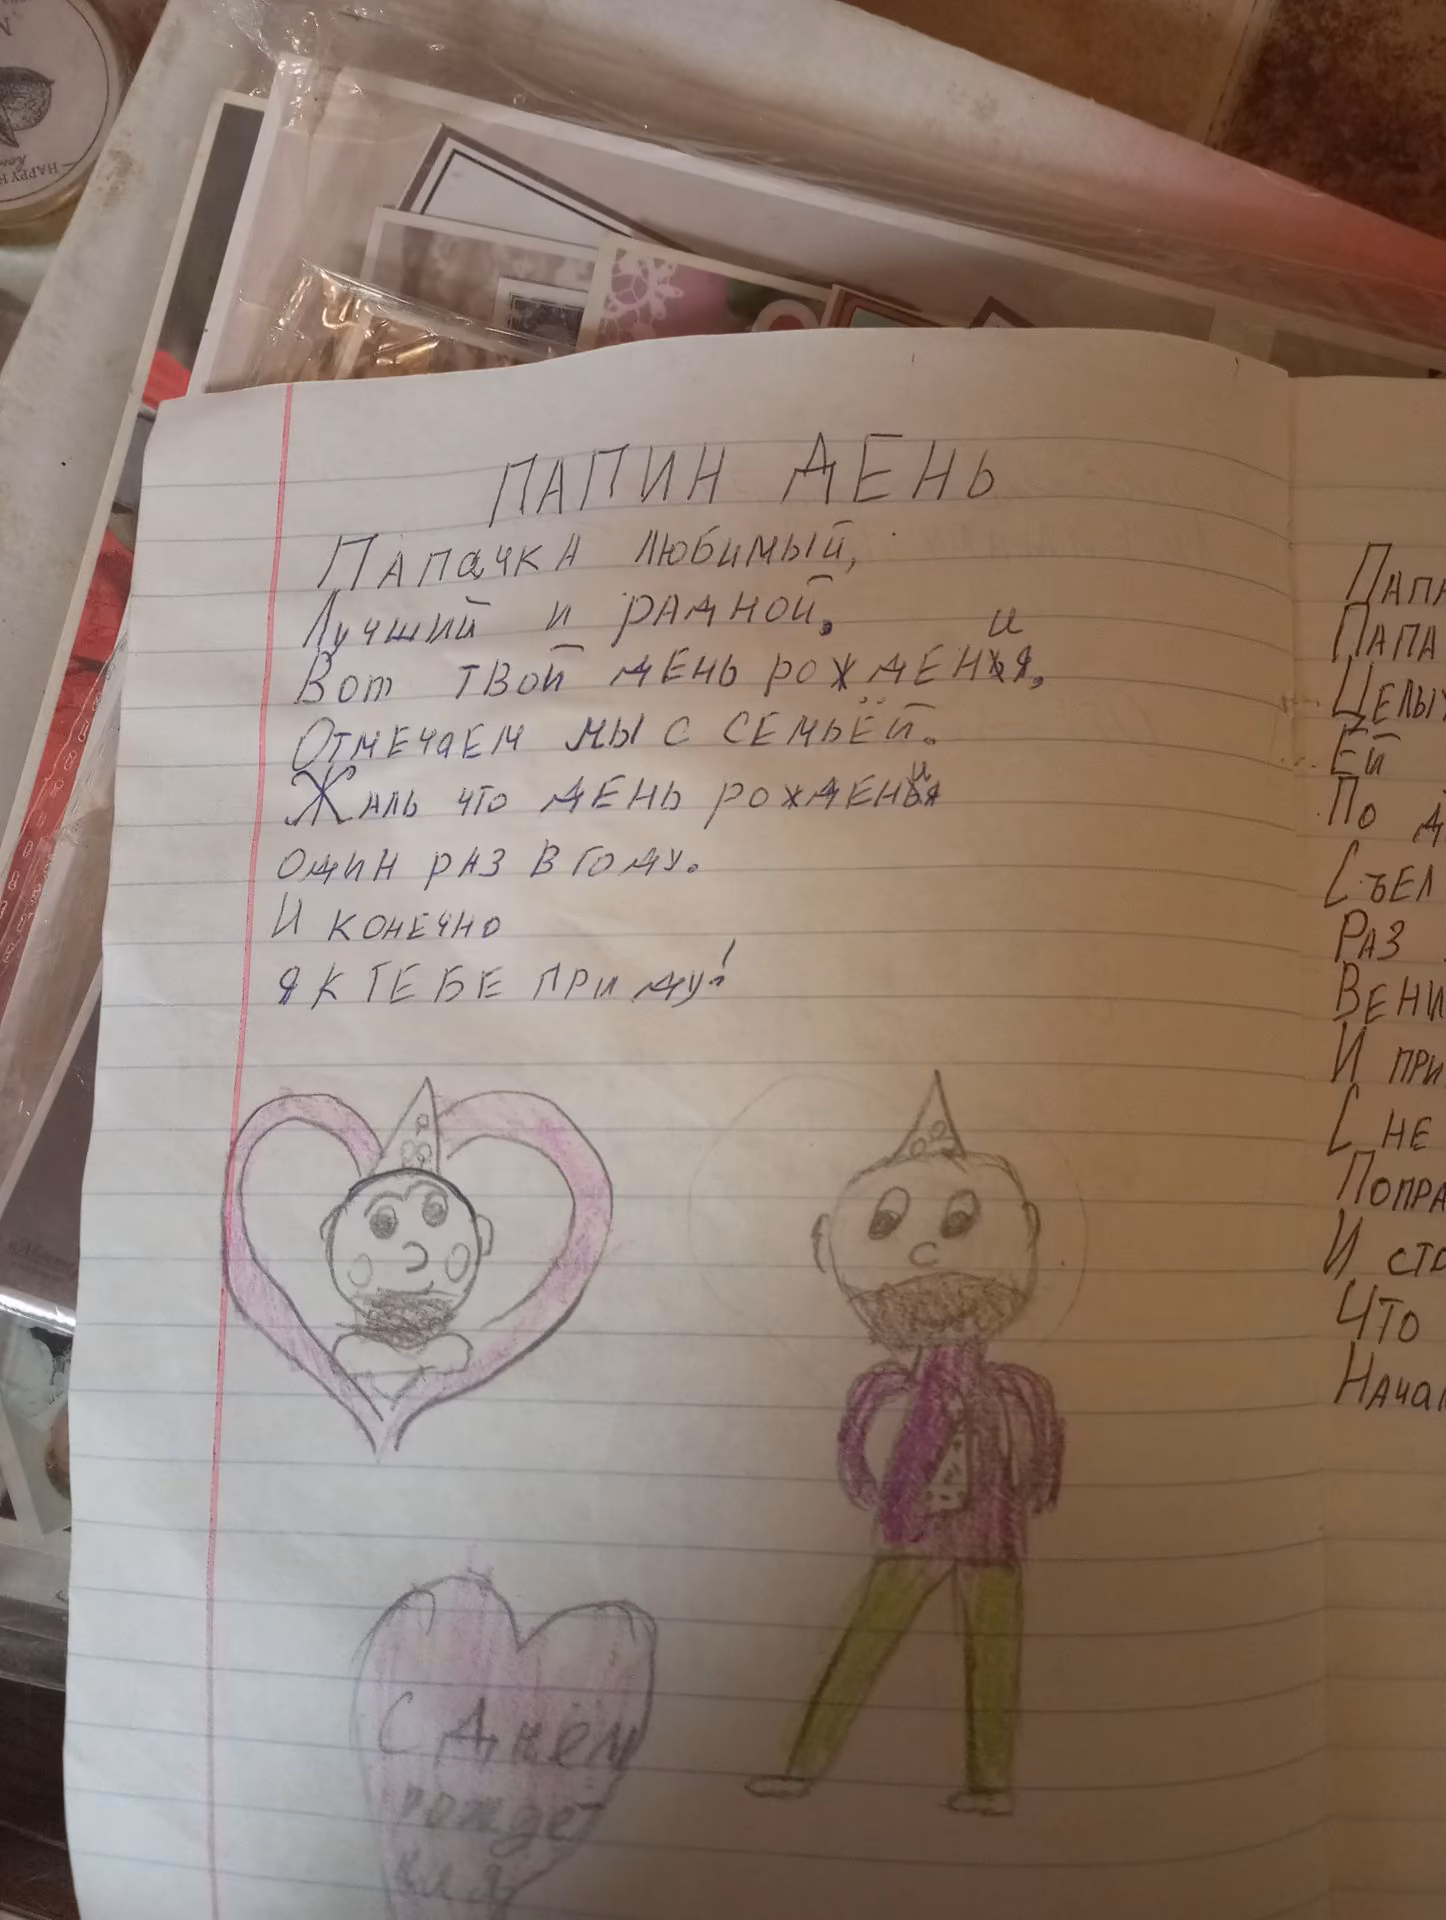 ПАПИН ДЕНЬ
Папачка любимый,
Лучший и радной,
Вот твой день рождения,
Отмечаем мы с семьёй.
Жаль что день рождения
один раз в году.
И конечно
я к тебе приду!
С Днём
рожде
ния
Папа
Ей
По
Съел
Раз
И при
С не
И
Что
HAPPY